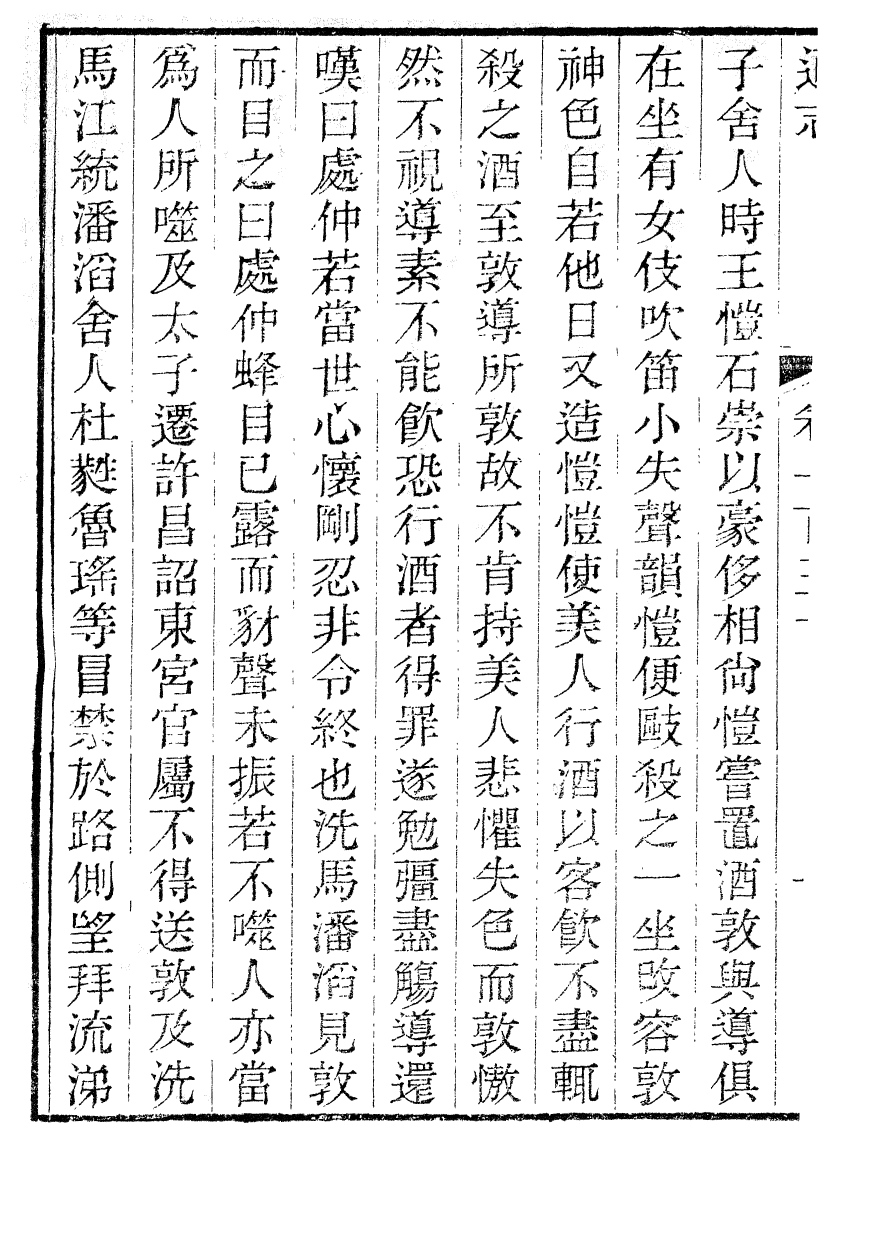 子舍人時王愷石崇以豪侈相尚愷嘗置酒敦與導俱
在坐有女伎吹笛小失聲韻愷便敺殺之一坐改容敦
神色自若他日又造愷愷使美人行酒以客飮不盡輒
殺之酒至敦導所敦故不肯持美人悲懼失色而敦慠
然不視導素不能飮恐行酒者得罪遂勉彊盡觴導還
嘆曰處仲若當世心懷剛忍非令終也洗馬潘滔見敦
而目之曰處仲蜂目已露而豺聲未振若不噬人亦當
爲人所噬及太子遷許昌詔東宮官屬不得送敦及洗
馬江統潘滔舍人杜蕤魯瑤等冒禁於路側望拜流涕